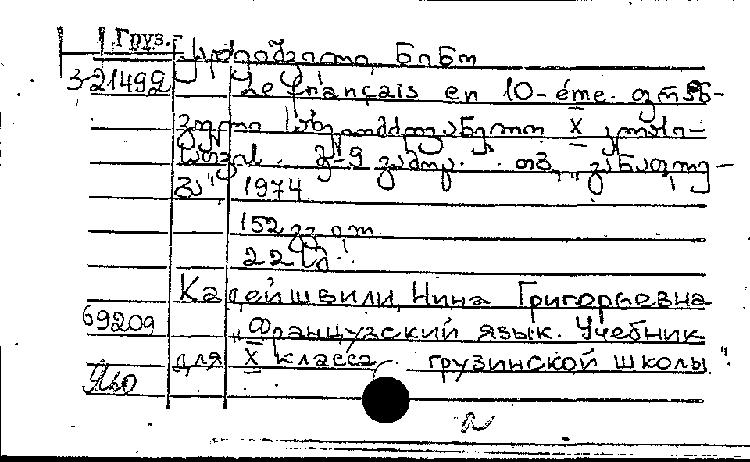 Груз.
ნინო
3-21492 Le français en 10-éme. ფრან-
გული სახელმძღვანელო X კლასი-
სათვის. მე-9 გამოც. თბ., „განათლე-
ბა", 1974
152 გვ.
22 სმ.
Кадейшвили, Нина Григорьевна
69209 „Французский язык. Учебник
для X класса грузинской школы".